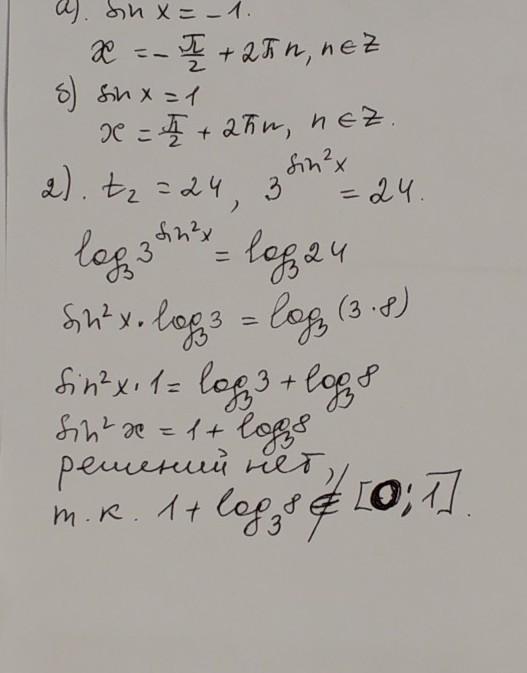 а). sin x = -1.
x = -π/2 + 2πn, n ∈ Z
б) sin x = 1
x = π/2 + 2πn, n ∈ Z.
2). t₂ = 24, 3^(sin²x) = 24.
log₃3^(sin²x) = log₃24
sin²x · log₃3 = log₃(3·8)
sin²x · 1 = log₃3 + log₃8
sin²x = 1 + log₃8
решений нет,
т.к. 1 + log₃8 ∉ [0; 1].